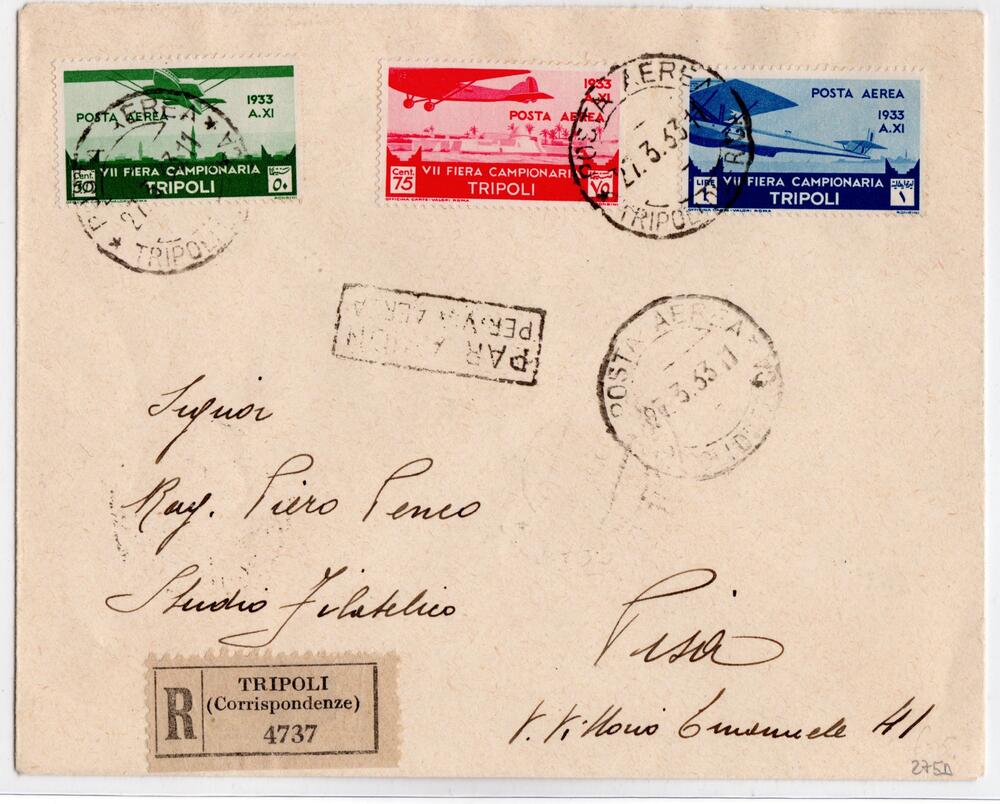 POSTA AEREA
1933
A.XI
Cent. 50
VII FIERA CAMPIONARIA
TRIPOLI
٥٠
1933
A.XI
POSTA AEREA
Cent. 75
VII FIERA CAMPIONARIA
TRIPOLI
٧٥
OFFICINA CARTE-VALORI ROMA
POSTA AEREA
1933
A.XI
LIRE 1
VII FIERA CAMPIONARIA
TRIPOLI
١
POSTA AEREA
TRIPOLI
POSTA AEREA
27.3.33.11
TRIPOLI
PAR AVION
PER VIA AEREA
POSTA AEREA
27.3.33 11
Signor
Rag. Piero Penco
Studio Filatelico
Pisa
V. Vittorio Emanuele 41
R
TRIPOLI
(Corrispondenze)
4737